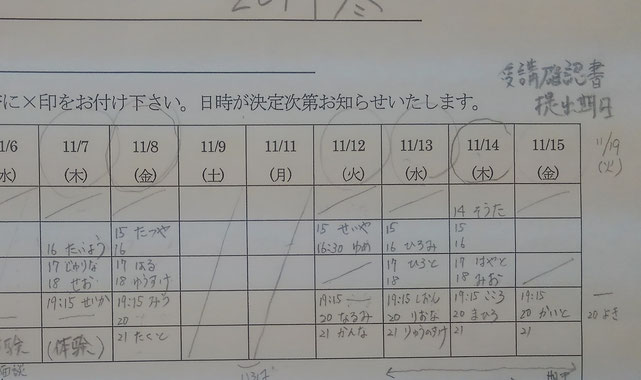 受講確認書
提出期日
に×印をお付け下さい。日時が決定次第お知らせいたします。
11/19
(火)
1/6 11/7 11/8 11/9 11/11 11/12 11/13 11/14 11/15
水) (木) (金) (土) (月) (火) (水) (木) (金)
14 そうた
15 たつや 15 せいや 15 15
16 たいよう 16 16:30 ゆめ 16 ひろみ 16
17 じゅりな 17 はる 17 ひろと 17 はやと
18 せお 18 ゆうすけ 18 18 みお
19:15 せいか 19:15 みう 19:15 19:15 しおん 19:15 こころ 19:15
20 20 なるみ 20 りおな 20 まひろ 20 かいと 20 よき
(体験) 21 たくと 21 かんな 21 りゅうのすけ 21 21